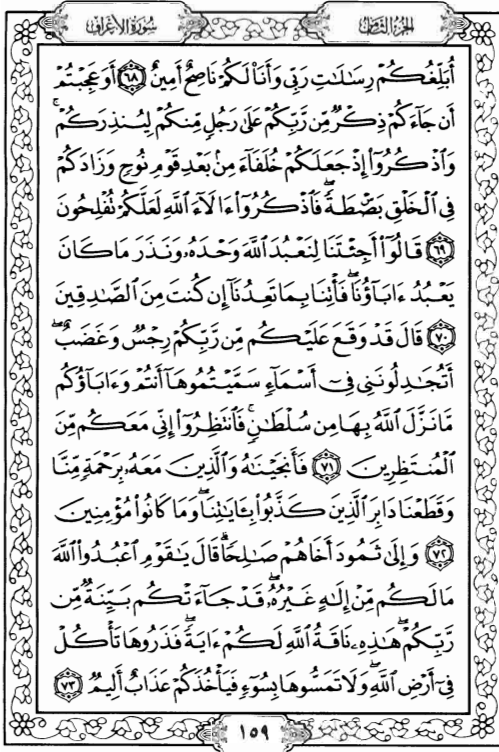 الجزء الثامن
سورة الأعراف
أُبَلِّغُكُمْ رِسَٰلَٰتِ رَبِّي وَأَنَا۠ لَكُمْ نَاصِحٌ أَمِينٌ ٦٨ أَوَعَجِبْتُمْ
أَن جَآءَكُمْ ذِكْرٌ مِّن رَّبِّكُمْ عَلَىٰ رَجُلٍ مِّنكُمْ لِيُنذِرَكُمْ ۚ
وَٱذْكُرُوٓا۟ إِذْ جَعَلَكُمْ خُلَفَآءَ مِنۢ بَعْدِ قَوْمِ نُوحٍ وَزَادَكُمْ
فِي ٱلْخَلْقِ بَصْۜطَةً ۖ فَٱذْكُرُوٓا۟ ءَالَآءَ ٱللَّهِ لَعَلَّكُمْ تُفْلِحُونَ
٦٩ قَالُوٓا۟ أَجِئْتَنَا لِنَعْبُدَ ٱللَّهَ وَحْدَهُۥ وَنَذَرَ مَا كَانَ
يَعْبُدُ ءَابَآؤُنَا ۖ فَأْتِنَا بِمَا تَعِدُنَآ إِن كُنتَ مِنَ ٱلصَّٰدِقِينَ
٧٠ قَالَ قَدْ وَقَعَ عَلَيْكُم مِّن رَّبِّكُمْ رِجْسٌ وَغَضَبٌ ۖ
أَتُجَٰدِلُونَنِي فِيٓ أَسْمَآءٍ سَمَّيْتُمُوهَآ أَنتُمْ وَءَابَآؤُكُم
مَّا نَزَّلَ ٱللَّهُ بِهَا مِن سُلْطَٰنٍ ۚ فَٱنتَظِرُوٓا۟ إِنِّي مَعَكُم مِّنَ
ٱلْمُنتَظِرِينَ ٧١ فَأَنجَيْنَٰهُ وَٱلَّذِينَ مَعَهُۥ بِرَحْمَةٍ مِّنَّا
وَقَطَعْنَا دَابِرَ ٱلَّذِينَ كَذَّبُوا۟ بِـَٔايَٰتِنَا ۖ وَمَا كَانُوا۟ مُؤْمِنِينَ
٧٢ وَإِلَىٰ ثَمُودَ أَخَاهُمْ صَٰلِحًا ۗ قَالَ يَٰقَوْمِ ٱعْبُدُوا۟ ٱللَّهَ
مَا لَكُم مِّنْ إِلَٰهٍ غَيْرُهُۥ ۖ قَدْ جَآءَتْكُم بَيِّنَةٌ مِّن
رَّبِّكُمْ ۖ هَٰذِهِۦ نَاقَةُ ٱللَّهِ لَكُمْ ءَايَةً ۖ فَذَرُوهَا تَأْكُلْ
فِيٓ أَرْضِ ٱللَّهِ ۖ وَلَا تَمَسُّوهَا بِسُوٓءٍ فَيَأْخُذَكُمْ عَذَابٌ أَلِيمٌ ٧٣
١٥٩